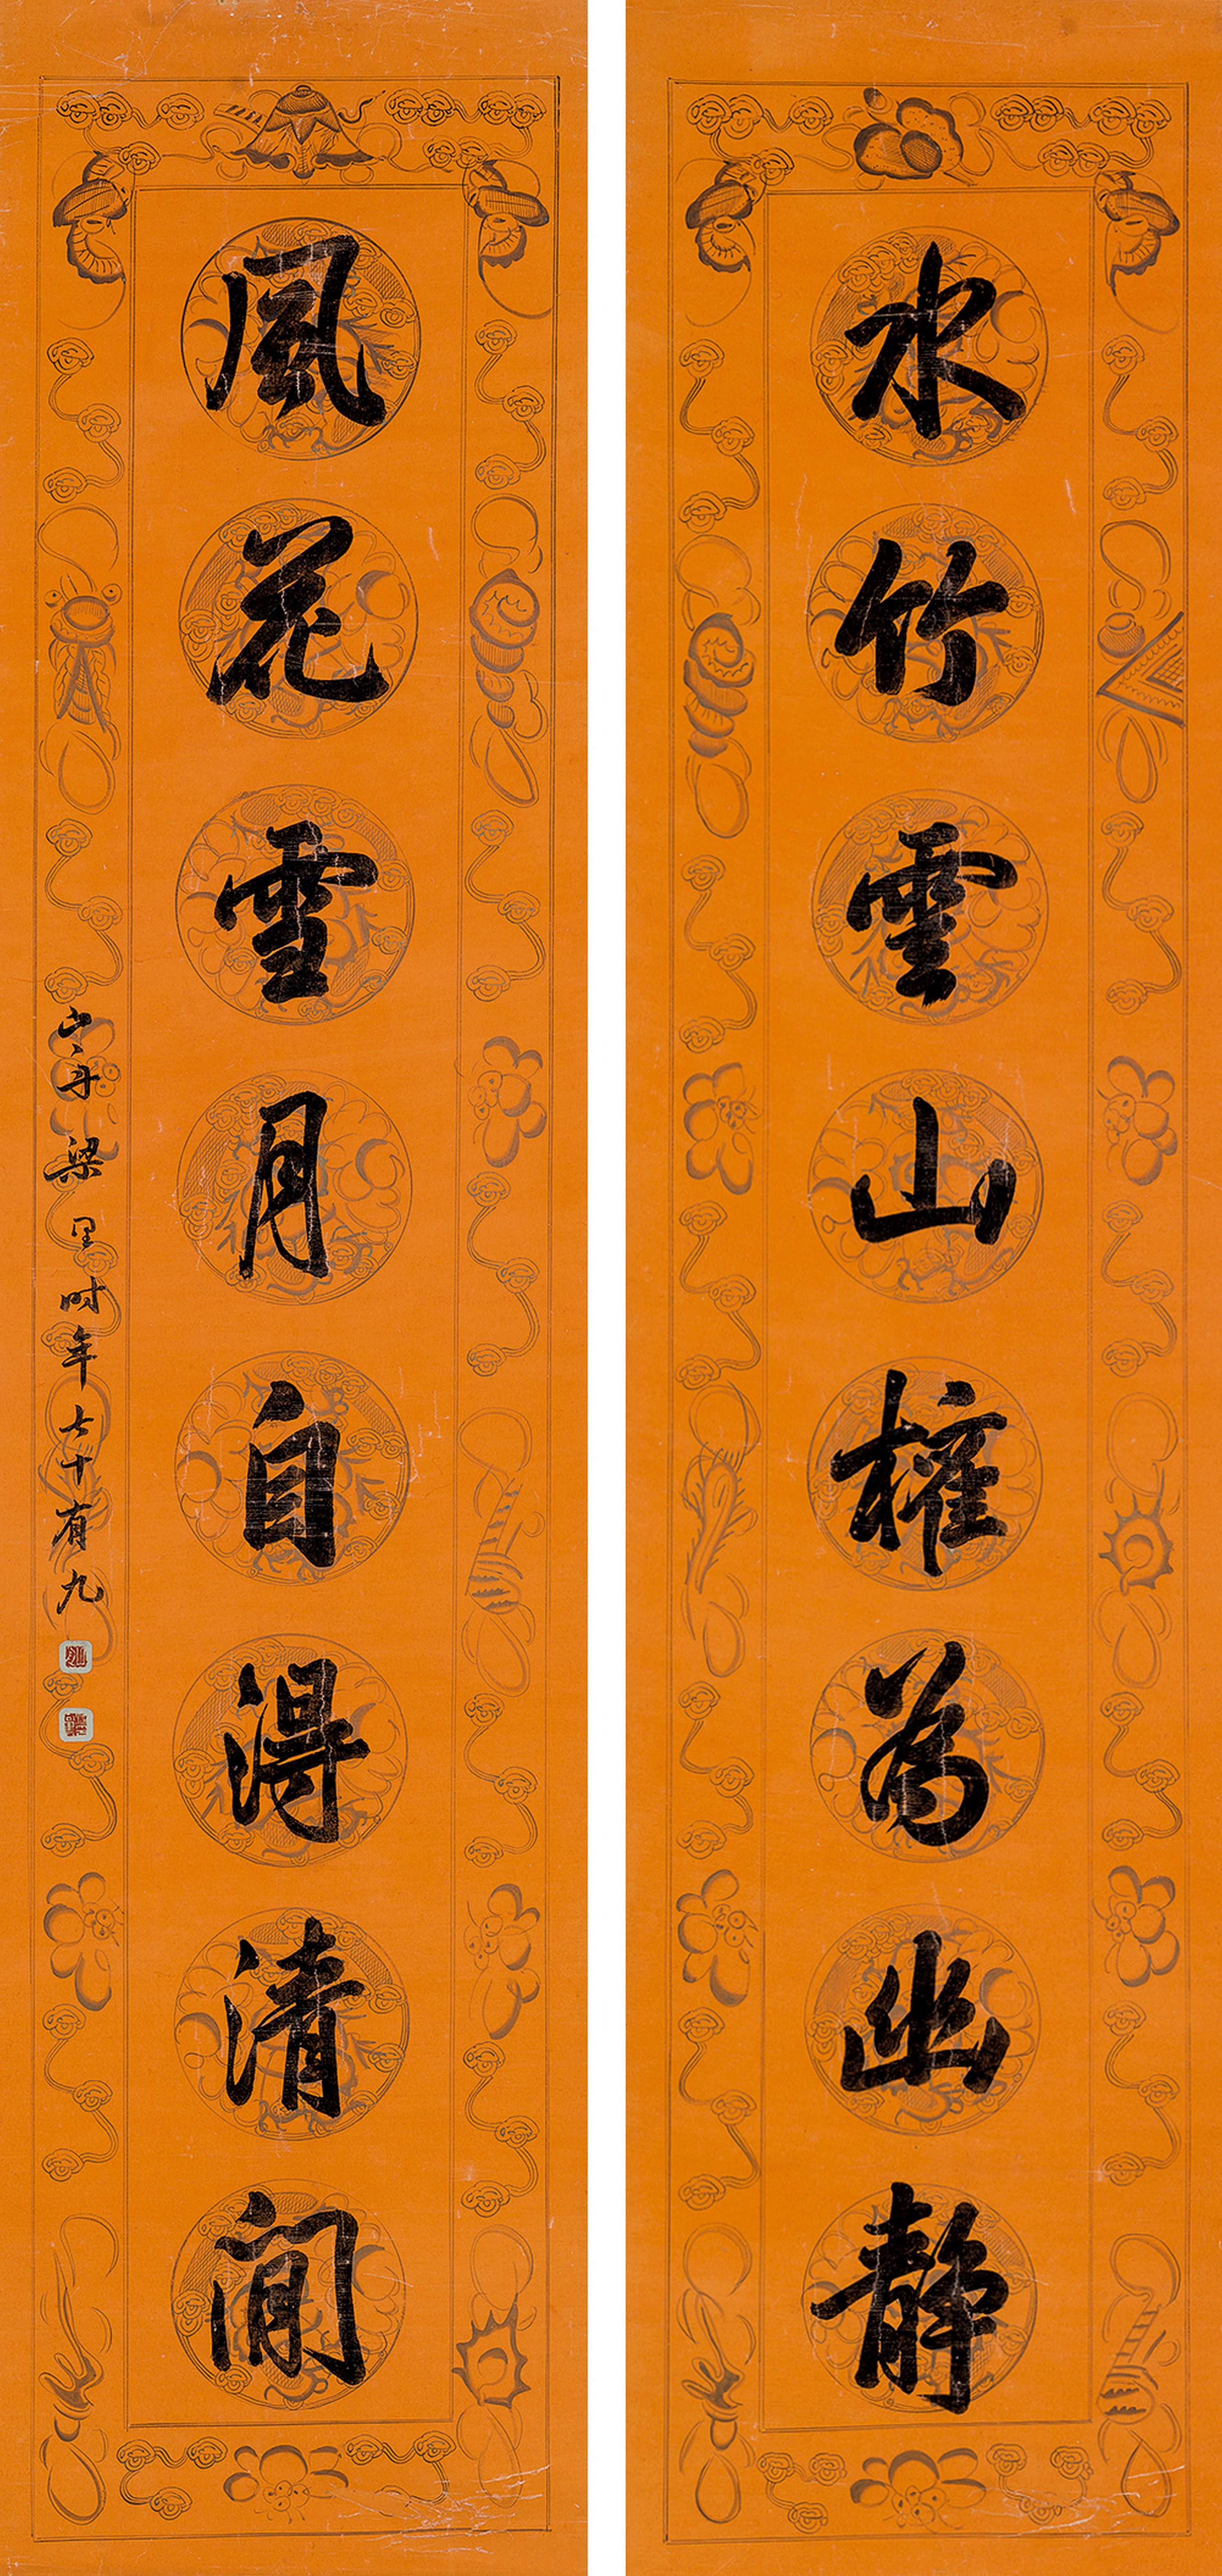 水竹雲山權為幽静
風花雪月自得清閒
山舟梁 时年七十有九